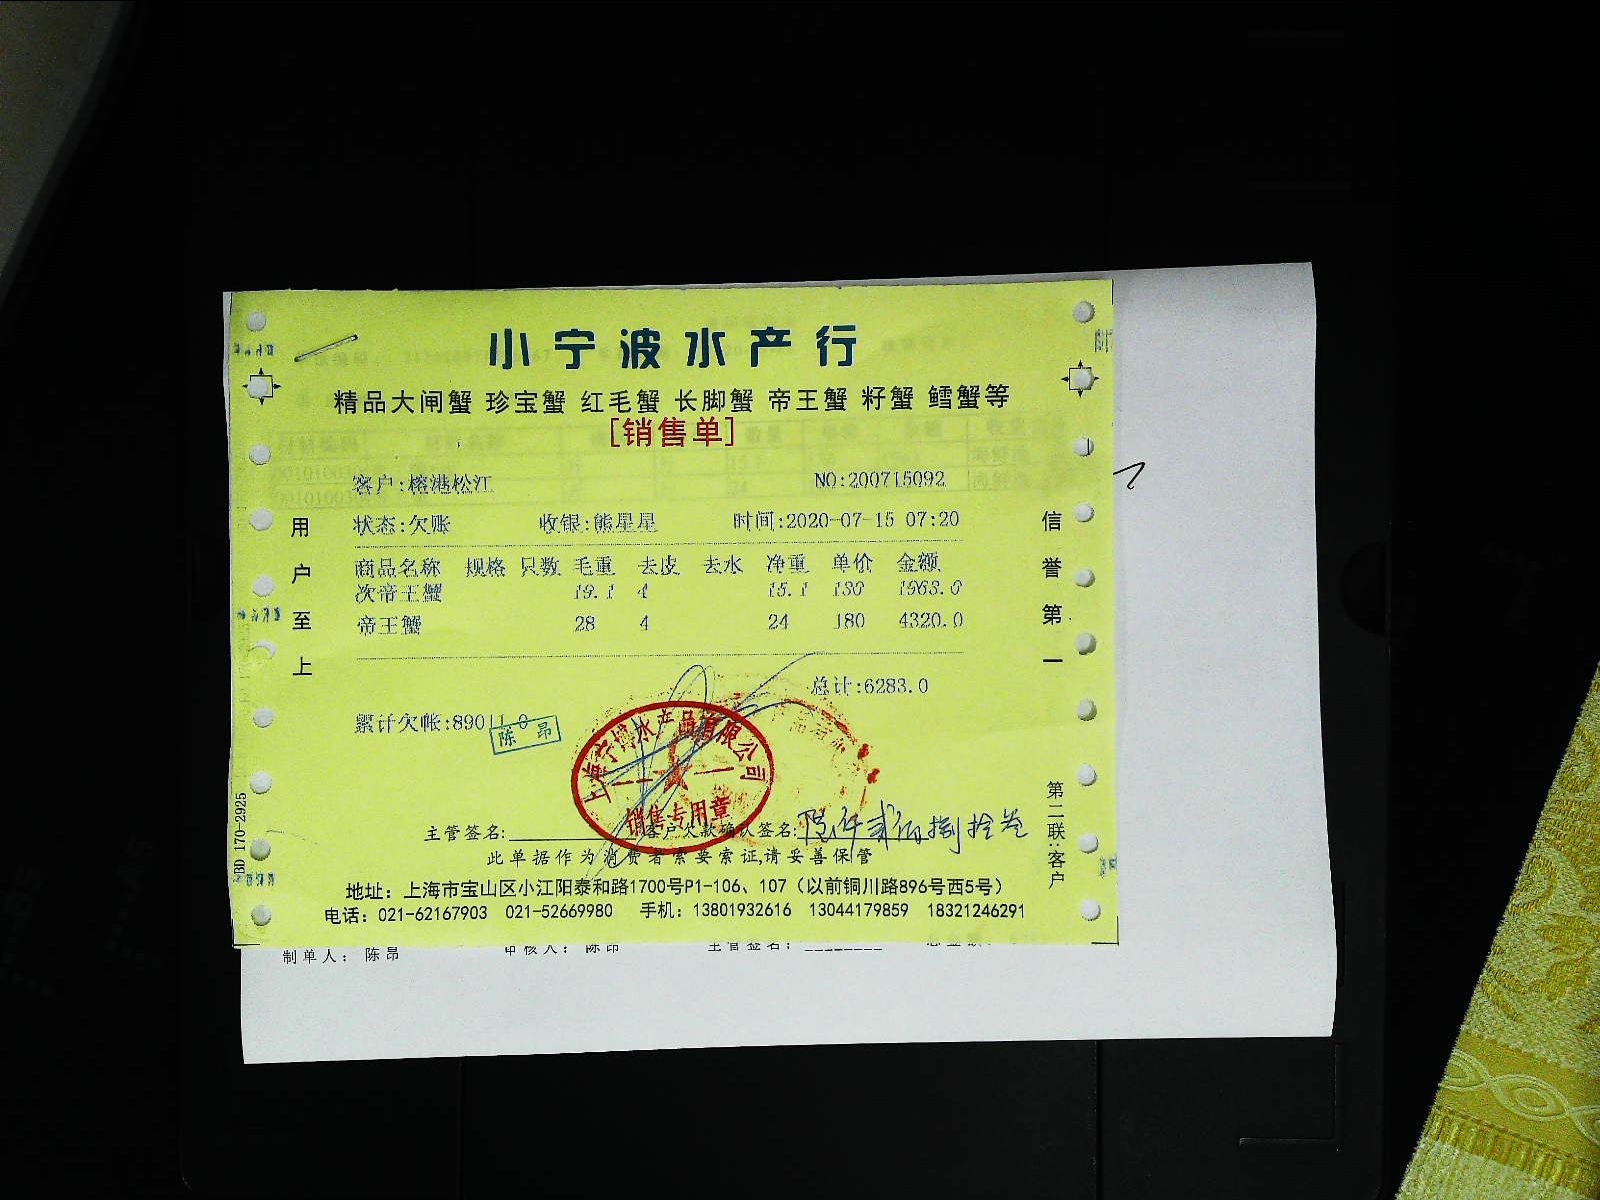 小宁波水产行
精品大闸蟹 珍宝蟹 红毛蟹 长脚蟹 帝王蟹 籽蟹 鳕蟹等
[销售单]
客户:榕港松江 NO:200715092
状态:欠账 收银:熊星星 时间:2020-07-15 07:20
商品名称 规格 只数 毛重 去皮 去水 净重 单价 金额
次帝王蟹 19.1 4 15.1 130 1963.0
帝王蟹 28 4 24 180 4320.0
总计:6283.0
累计欠帐:89011.0
陈昂
上海宁博水产品有限公司
销售专用章
主管签名: 客户欠款确认签名: 陆仟贰佰捌拾叁
此单据作为消费者索要索证,请妥善保管
地址：上海市宝山区小江阳泰和路1700号P1-106、107（以前铜川路896号西5号）
电话：021-62167903 021-52669980 手机：13801932616 13044179859 18321246291
用户至上
信誉第一
第二联:客户
BD 170-2925
制单人： 陈昂 审核人： 陈昂 主管签名：